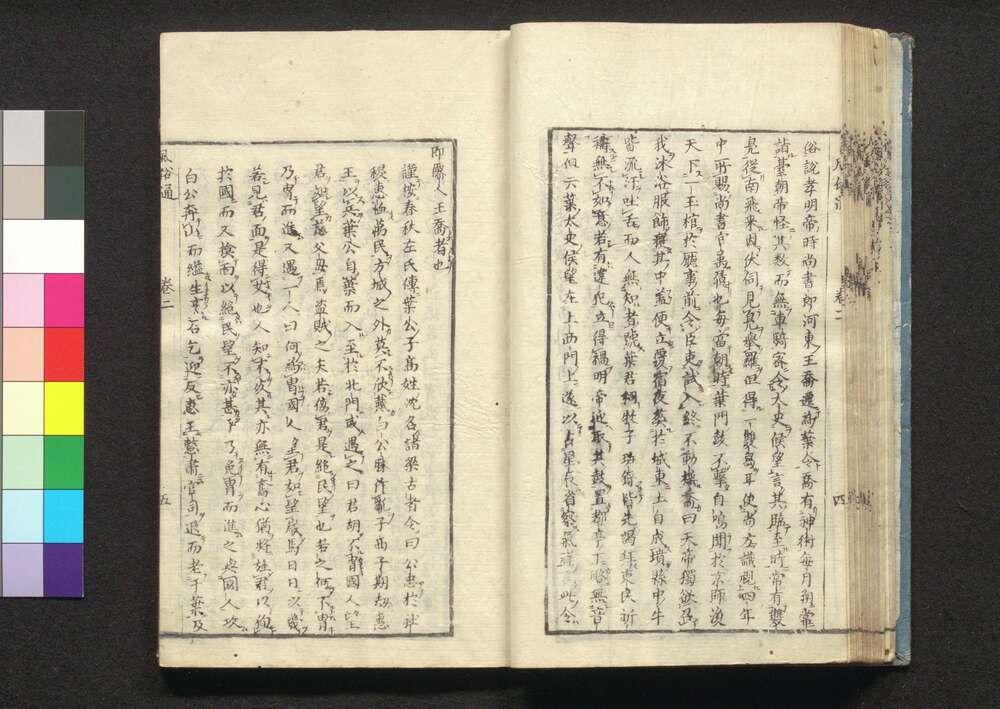 俗說孝明帝時尚書郎河東王喬遷爲葉令喬有神術每月朔常
詣臺朝帝怪其數而無車騎密令太史候望言其臨至時常有雙
鳧從南飛來因伏伺見鳧擧羅但得一雙舃耳使尚方識視四年
中所賜尚書官屬履也每當朝時葉門鼓不擊自鳴聞於京師後
天下一玉棺於廳事前令臣吏試入終不動搖喬曰天帝獨欲召
我沐浴服飾寢其中蓋便立覆宿夜葬於城東土自成墳縣中牛
皆流汗吐舌而人無知者號葉君祠牧守班錄皆先謁拜吏民祈
禱無不如意若有違犯立得禍明帝迎取其鼓置都亭下略無音
聲但云葉太史候望在上西門上遂以占星長省察氣 此令
卷二 四
即僊人王喬者也
謹按春秋左氏傳葉公子高姓沈名諸梁古者令曰公惠於
穆惠恤萬民方城之外莫不欣戴白公勝作亂子西子期劫惠
王以兵葉公自葉而入至於北門或遇之曰君胡不冑國人望
君如望慈父母焉盜賊之矢若傷君是絕民望也若之何不冑
乃冑而進又遇一人曰何爲冑國人望君如望歲焉日日以幾
若見君面是得艾也人知不死其亦無有奮心猶將旌君以徇
於國而又掩面以絕民望不亦甚乎乃免冑而進之與國人攻
白公奔山而縊生烹石乞迎反惠王整肅官司退而老于葉及
風俗通 卷二 五